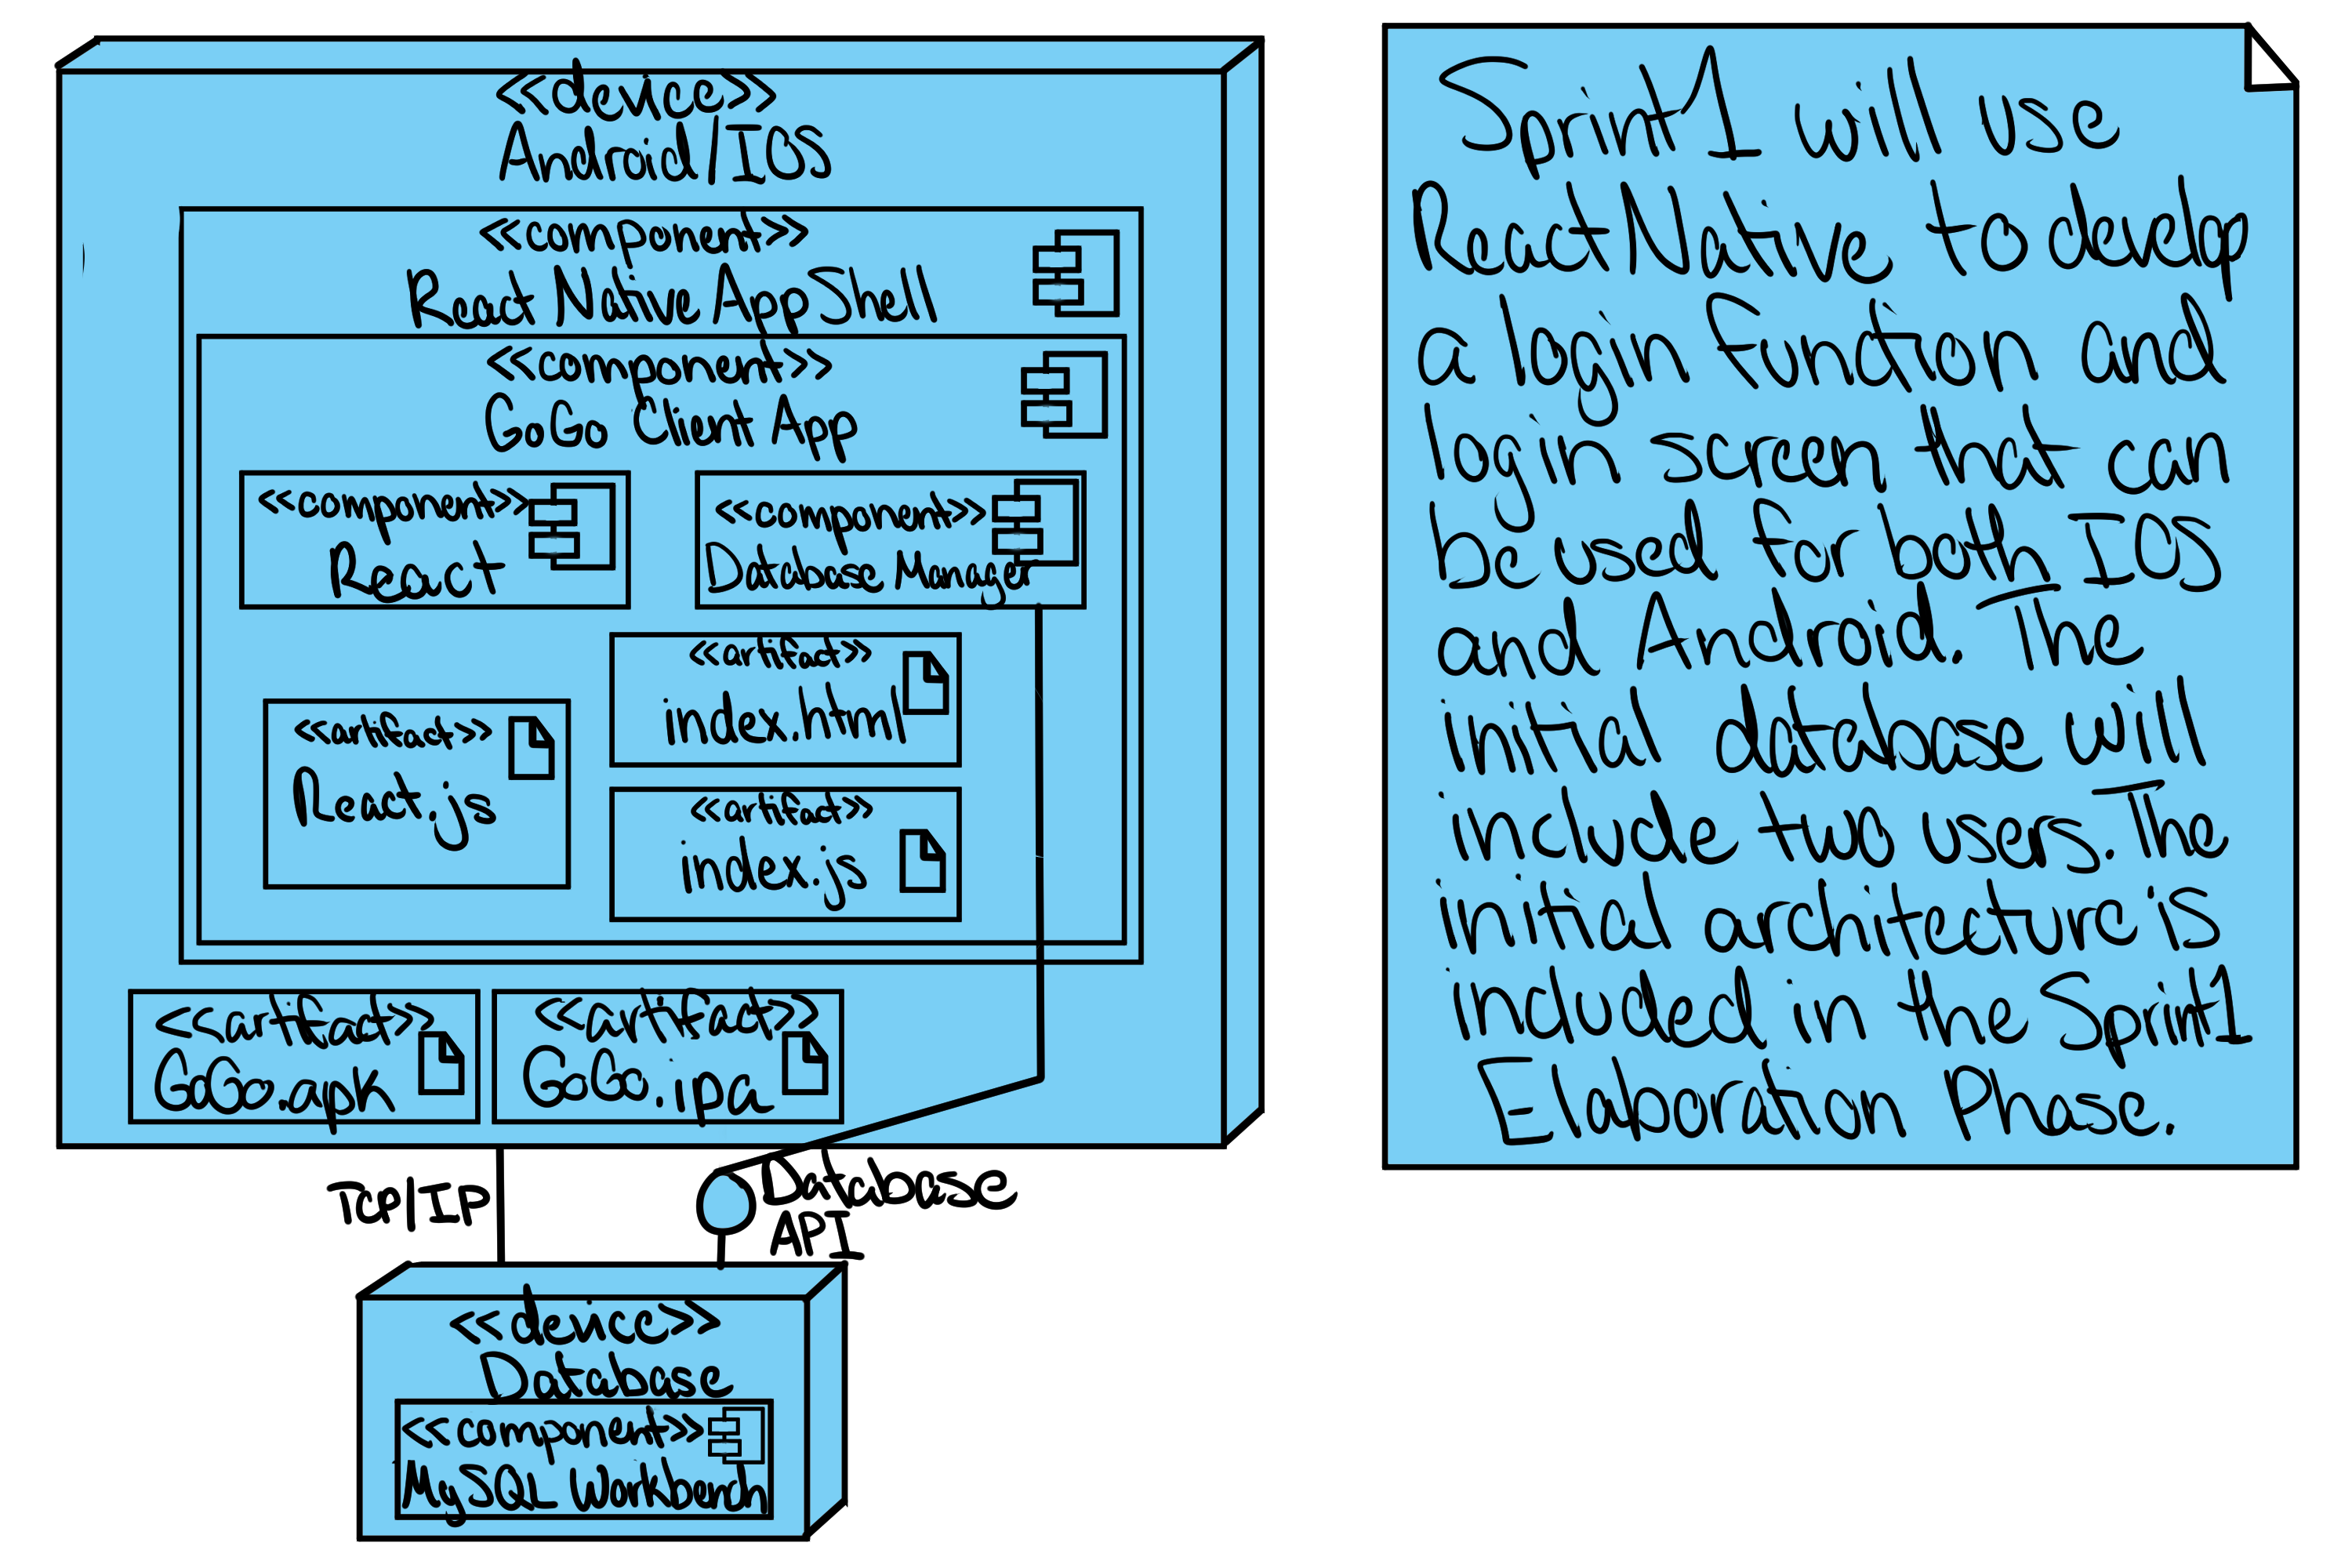 <<device>>
Android/IOS
<<component>>
React Native App Shell
<<component>>
GoGo Client App
<<component>>
React
<<component>>
Database Manager
<<artifact>>
index.html
<<artifact>>
React.js
<<artifact>>
index.js
<<artifact>>
GoGo.apk
<<artifact>>
GoGo.ipa
TCP/IP
Database
API
<<device>>
Database
<<component>>
MySQL Workbench
Sprint1 will use
React Native to develop
a login function and
login screen that can
be used for both IOS
and Android. The
initial database will
include two users. The
initial architecture is
included in the Sprint1
Elaboration Phase.